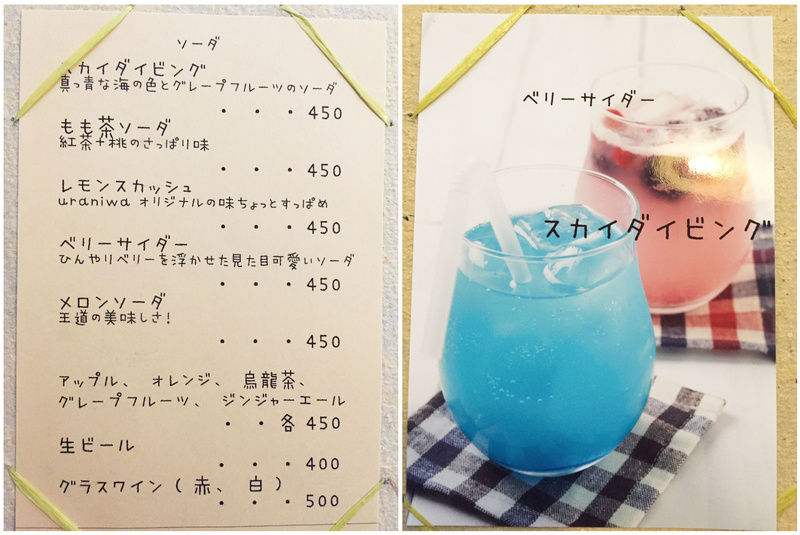 ソーダ
スカイダイビング
真っ青な海の色とグレープフルーツのソーダ
・・・450
もも茶ソーダ
紅茶+桃のさっぱり味
・・・450
レモンスカッシュ
uraniwa オリジナルの味ちょっとすっぱめ
・・・450
ベリーサイダー
ひんやりベリーを浮かせた見た目可愛いソーダ
・・・450
メロンソーダ
王道の美味しさ!
・・・450
アップル、 オレンジ、 烏龍茶、
グレープフルーツ、 ジンジャーエール
・・各 450
生ビール
・・・400
グラスワイン ( 赤、 白 )
・・・500
ベリーサイダー
スカイダイビング